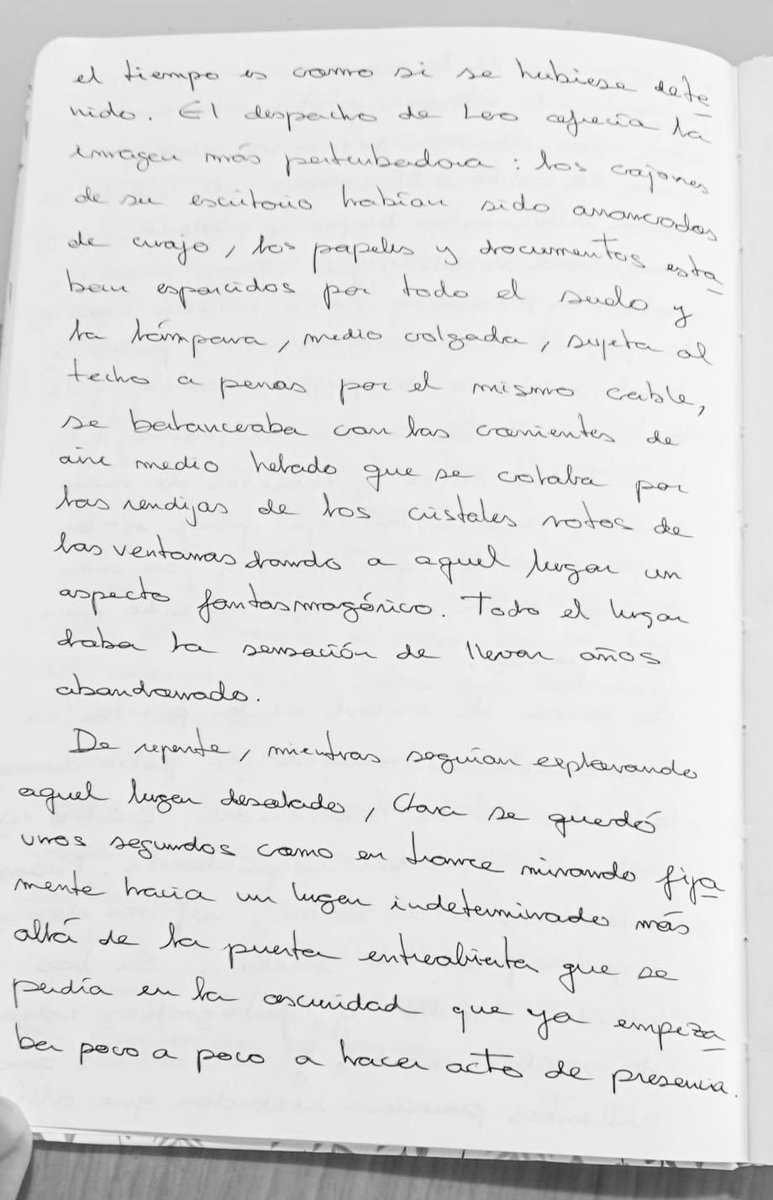 el tiempo es como si se hubiese dete
nido. El despacho de Leo ofrecía la
imagen más perturbadora: los cajones
de su escritorio habían sido arrancados
de cuajo, los papeles y documentos esta
ban esparcidos por todo el suelo y
la lámpara, medio colgada, sujeta al
techo a penas por el mismo cable,
se balanceaba con las corrientes de
aire medio helado que se colaba por
las rendijas de los cristales rotos de
las ventanas dando a aquel lugar un
aspecto fantasmagórico. Todo el lugar
daba la sensación de llevar años
abandonado.
De repente, mientras seguían explorando
aquel lugar desolado, Clara se quedó
unos segundos como en trance mirando fija
mente hacia un lugar indeterminado más
allá de la puerta entreabierta que se
perdía en la oscuridad que ya empeza
ba poco a poco a hacer acto de presencia.